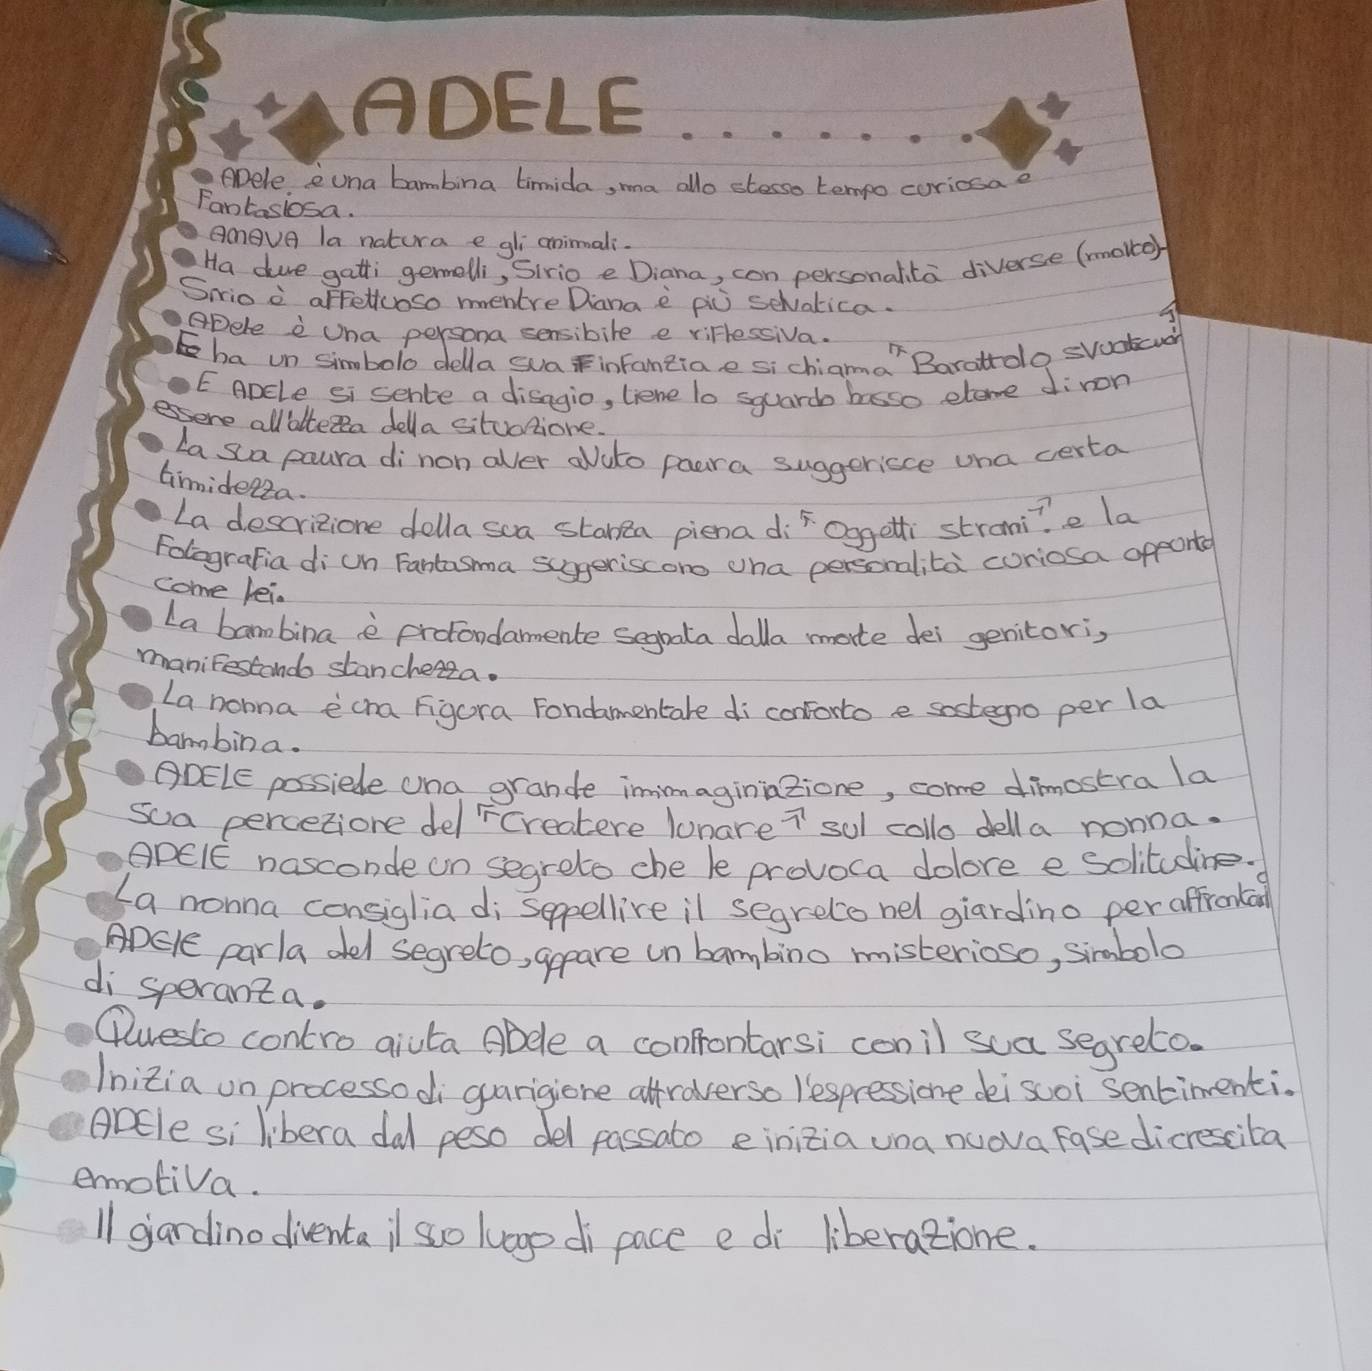 ADELE.......
• ADele è una bambina timida, ma allo stesso tempo curiosa e
Fantasiosa.
• AMAVA la natura e gli animali.
• Ha due gatti gemelli, Sirio e Diana, con personalità diverse (molto)
Sirio è affettuoso mentre Diana è più selvatica.
• ADele è una persona sensibile e riflessiva.
• E ha un simbolo della sua infanzia e si chiama "Barattolo
• E ADELE si sente a disagio, tiene lo sguardo basso e teme di non
essere all'altezza della situazione.
• La sua paura di non aver avuto paura suggerisce una certa
timidezza.
• La descrizione della sua stanza piena di "Oggetti strani". e la
Fotografia di un Fantasma suggeriscono una personalità curiosa
come lei.
• La bambina è profondamente segnata dalla morte dei genitori,
manifestando stanchezza.
• La nonna è una Figura Fondamentale di conforto e sostegno per la
bambina.
• ADELE possiede una grande immaginiazione, come dimostra la
sua percezione del "Createre lunare" sul collo della nonna.
• ADELE nasconde un segreto che le provoca dolore e solitudine.
• La nonna consiglia di seppellire il segreto nel giardino per
• ADELE parla del segreto, appare un bambino misterioso, simbolo
di speranza.
• Questo contro aiuta ADele a confrontarsi con il sua segreto.
• Inizia un processo di guarigione attraverso l'espressione dei suoi sentimenti.
• ADELE si libera dal peso del passato e inizia una nuova fase di crescita
emotiva.
• Il giardino diventa il suo luogo di pace e di liberazione.